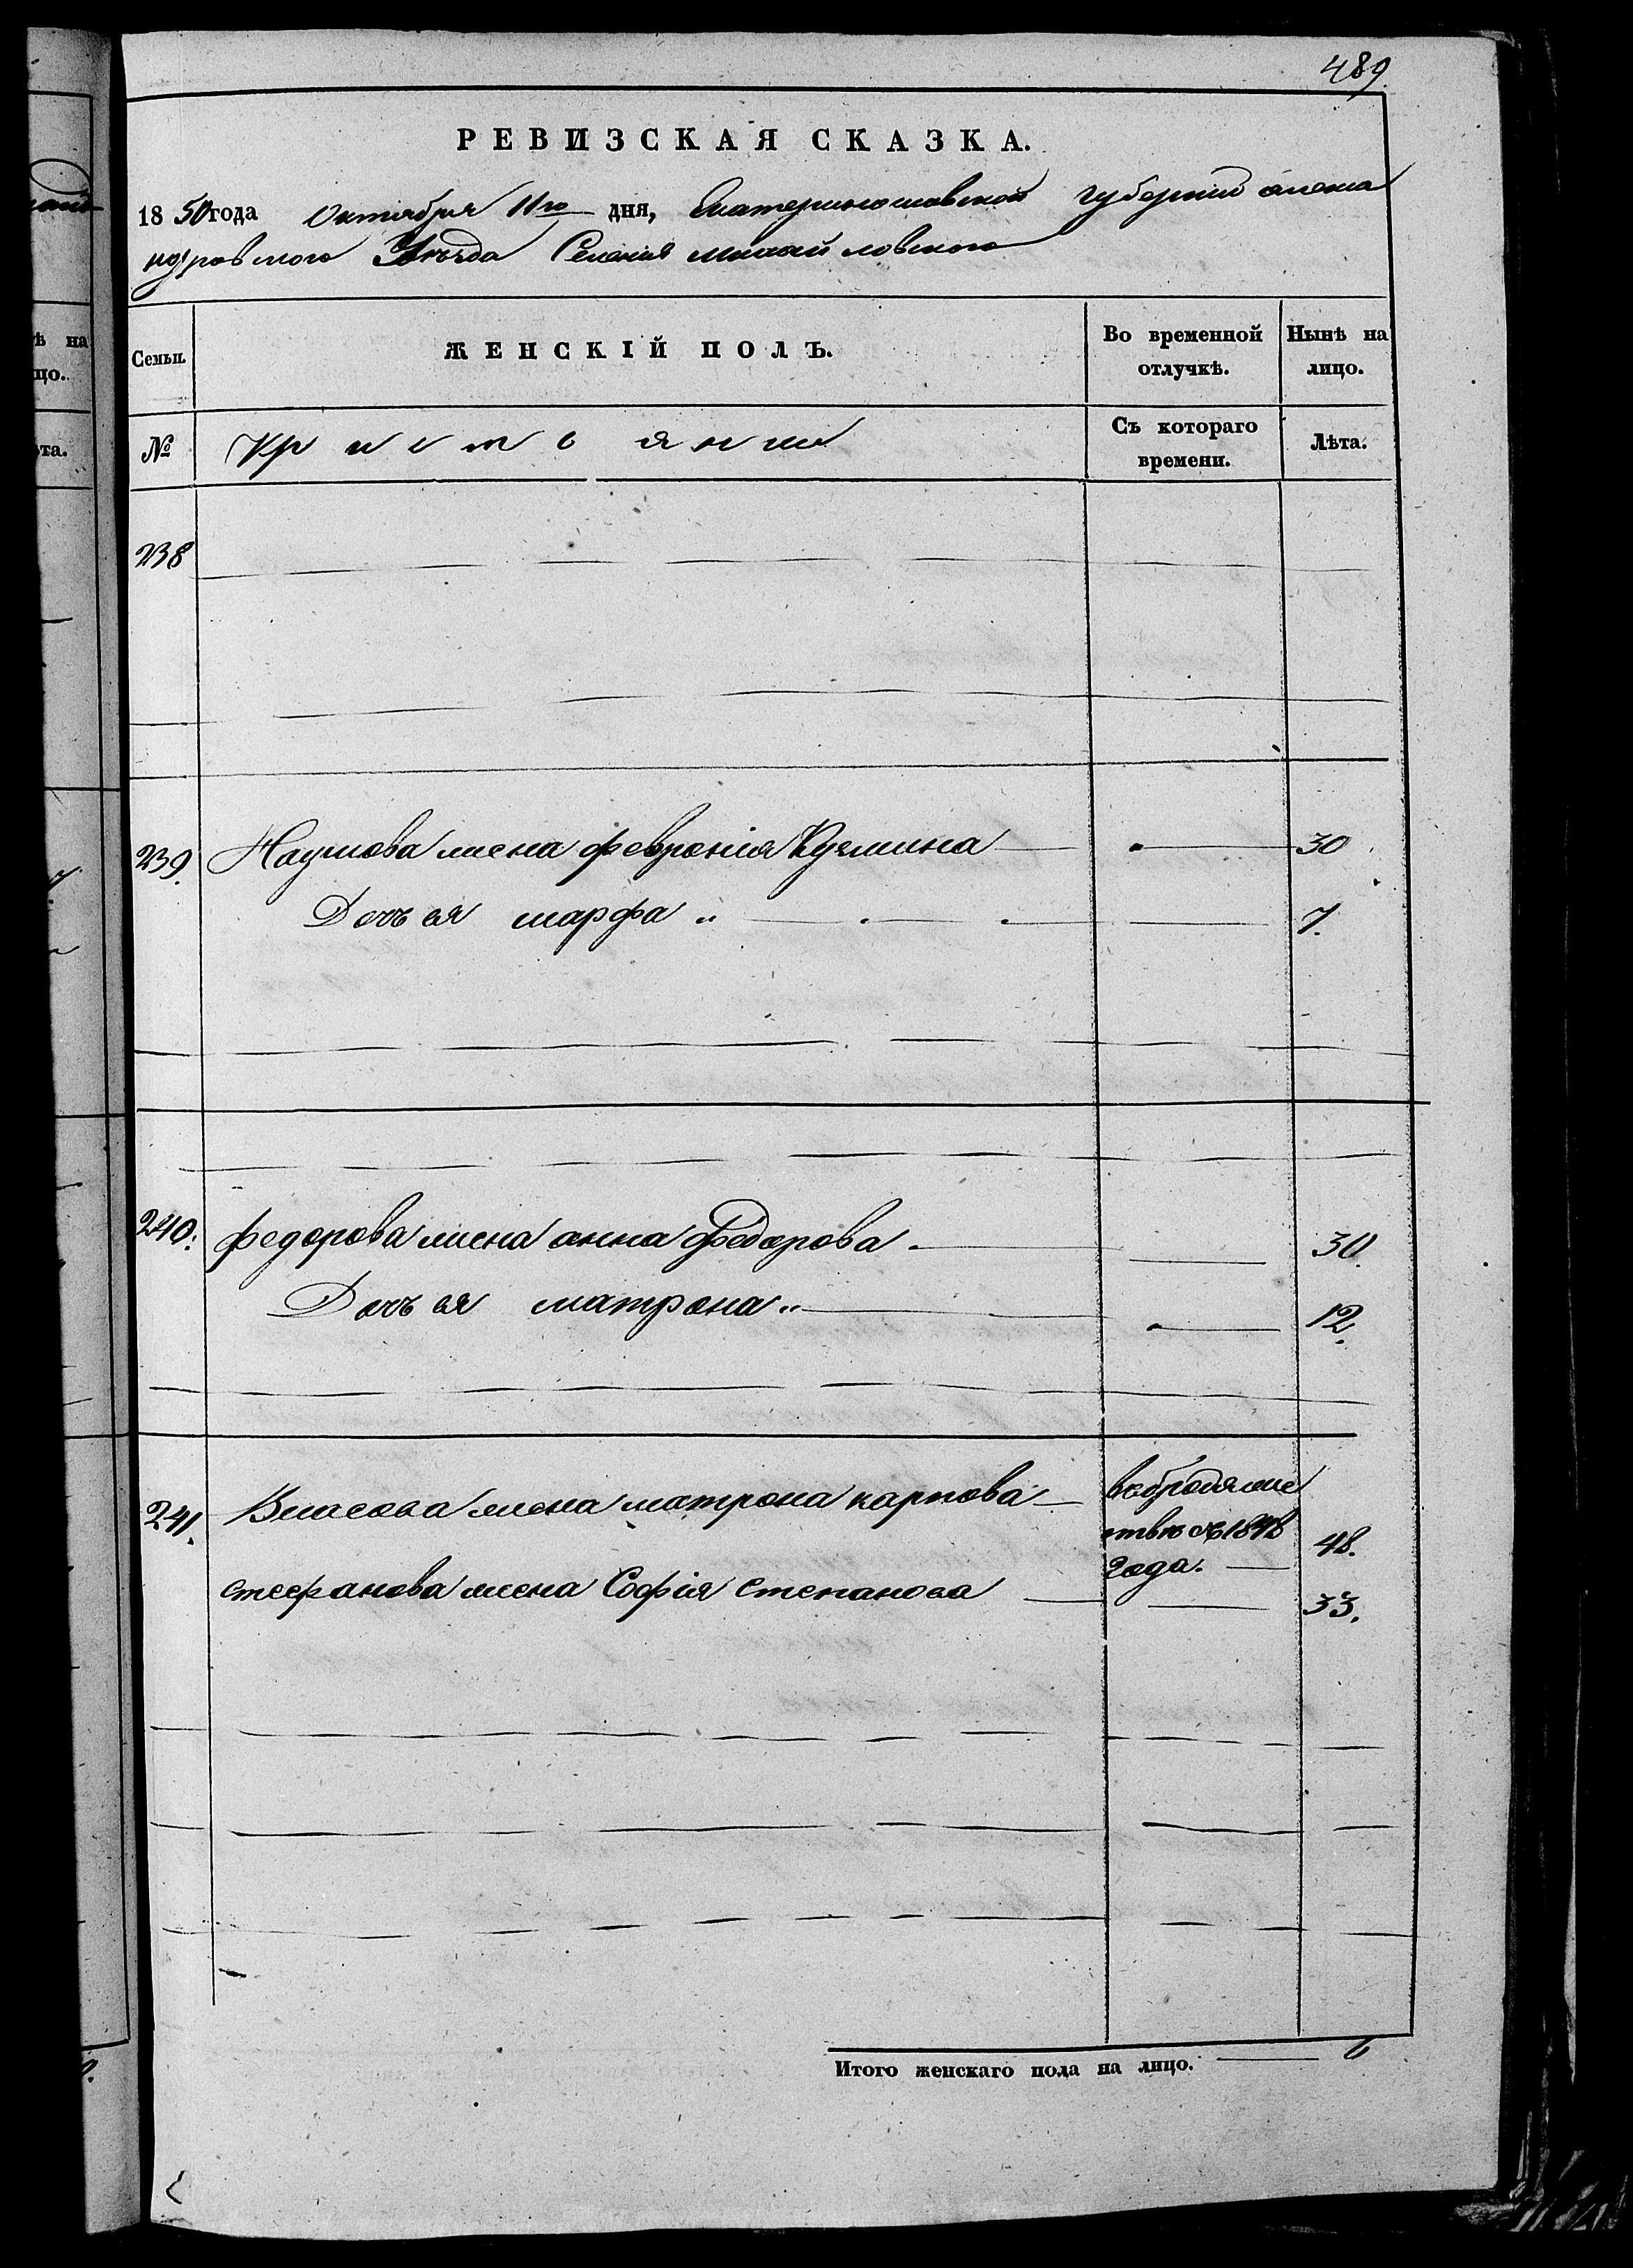 489.
РЕВИЗСКАЯ СКАЗКА.
1850 года Октября 11го дня, Екатеринославской губернии алекса
ндровского Уезда Селения михайловского
Семьи.
ЖЕНСКІЙ ПОЛЪ.
Во временной отлучкѣ.
Нынѣ на лицо.
№
Крестьяни
Съ котораго времени.
Лѣта.
238
239. Наумова жена Феврониія Кузмина 30
Дочь ея марфа 7.
240. Федорова жена анна Федорова 30.
Дочь ея матрона 12.
241. Власова жена матрона карпова
в бродяже
ствѣ съ 1848
года. 48.
стефанова жена Софія степанова 33.
Итого женскаго пола на лицо. 6